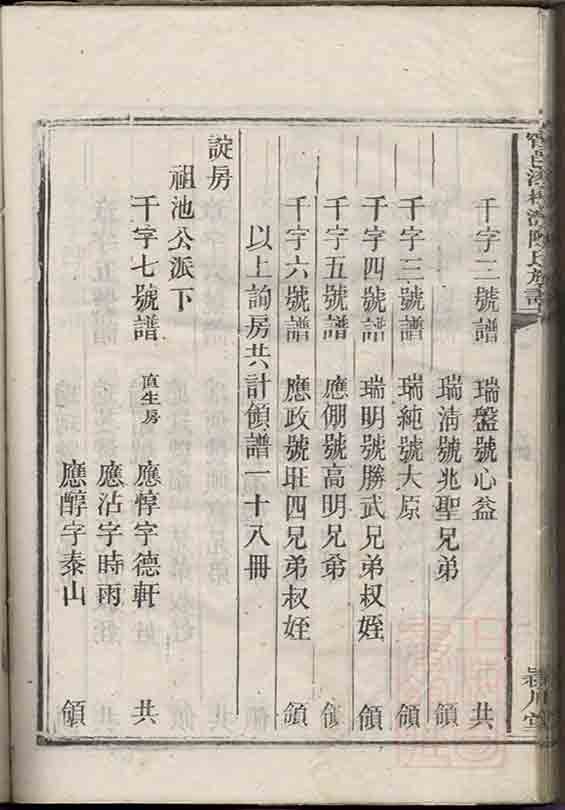 千字二號譜 瑞盤號心益 共
瑞淸號兆聖兄弟 領
千字三號譜 瑞純號大原 領
千字四號譜 瑞明號勝武兄弟叔姪 領
千字五號譜 應倗號高明兄弟 領
千字六號譜 應政號旺四兄弟叔姪 領
以上詢房共計領譜一十八冊
諚房
祖池公派下
千字七號譜 直生房 應惇字德軒 共
應沾字時雨
應醇字泰山 領
陳氏族譜
潁川堂